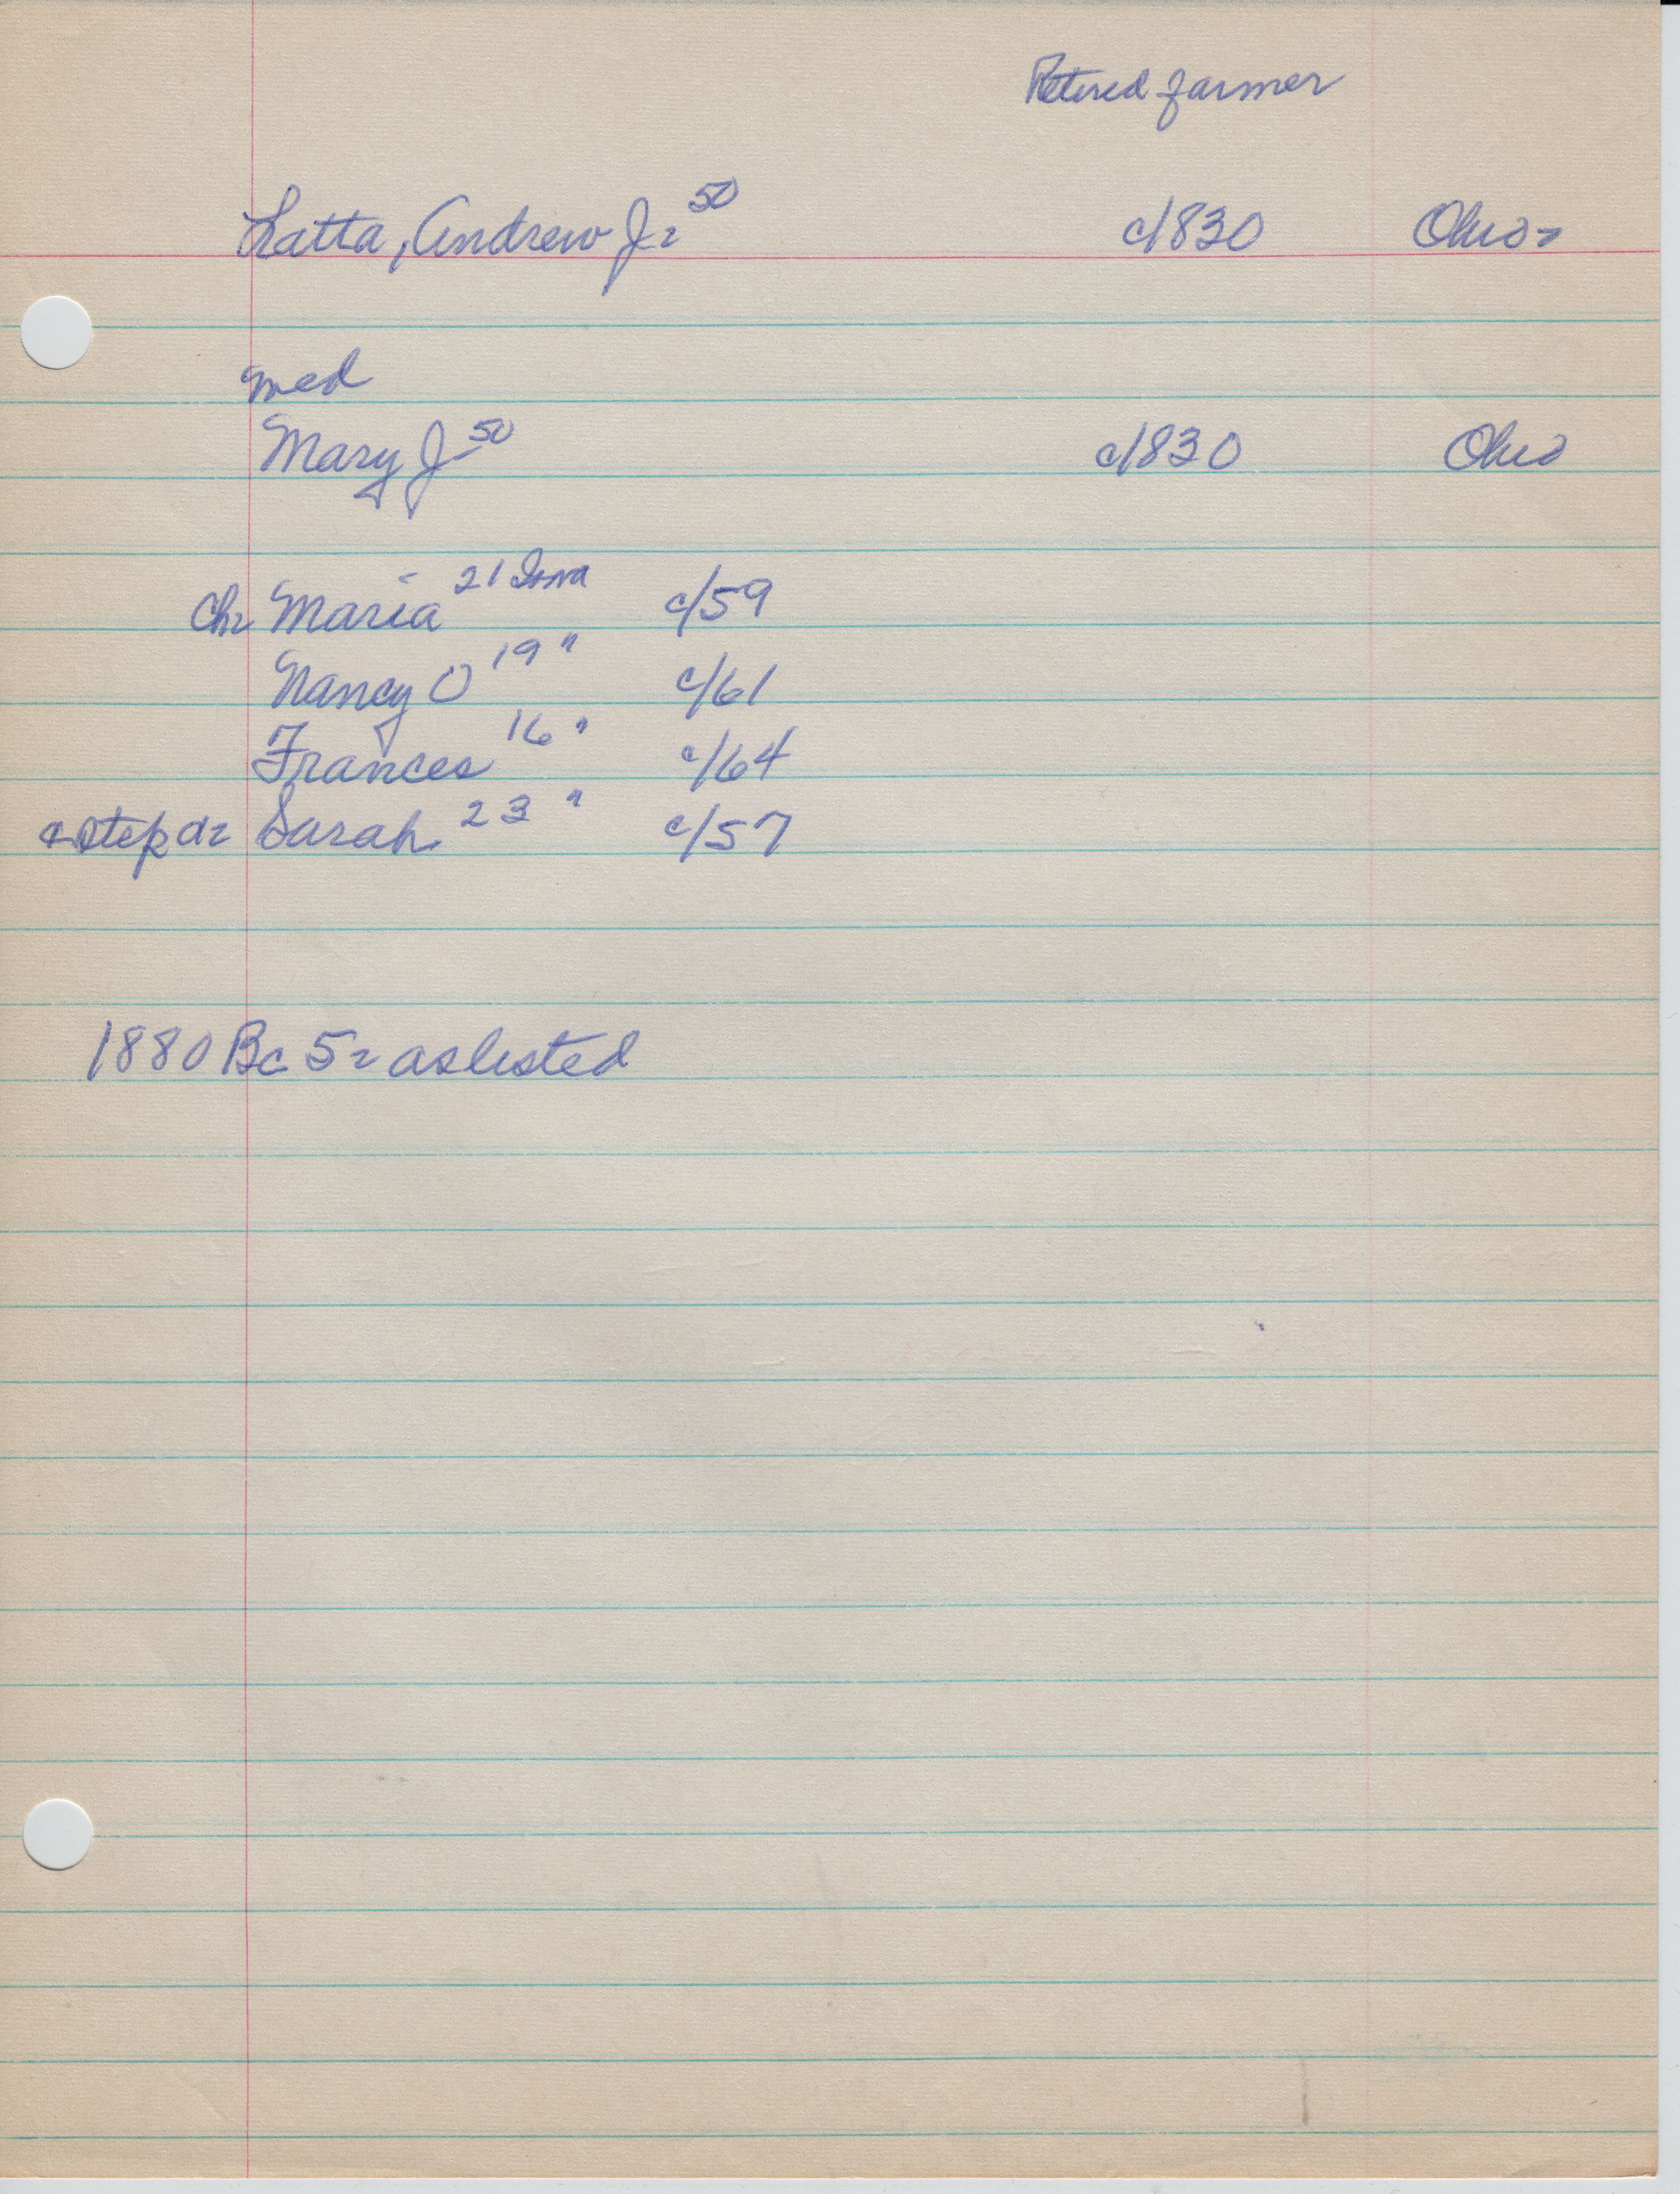 Retired farmer
Latta, Andrew J= 50 c/830 Ohio=
med
Mary J- 50 c/830 Ohio
Ch= Maria 21 Iowa c/59
Nancy O 19 " c/61
Frances 16 " c/64
& step d= Sarah 23 " c/57
1880 Bc 5= as listed